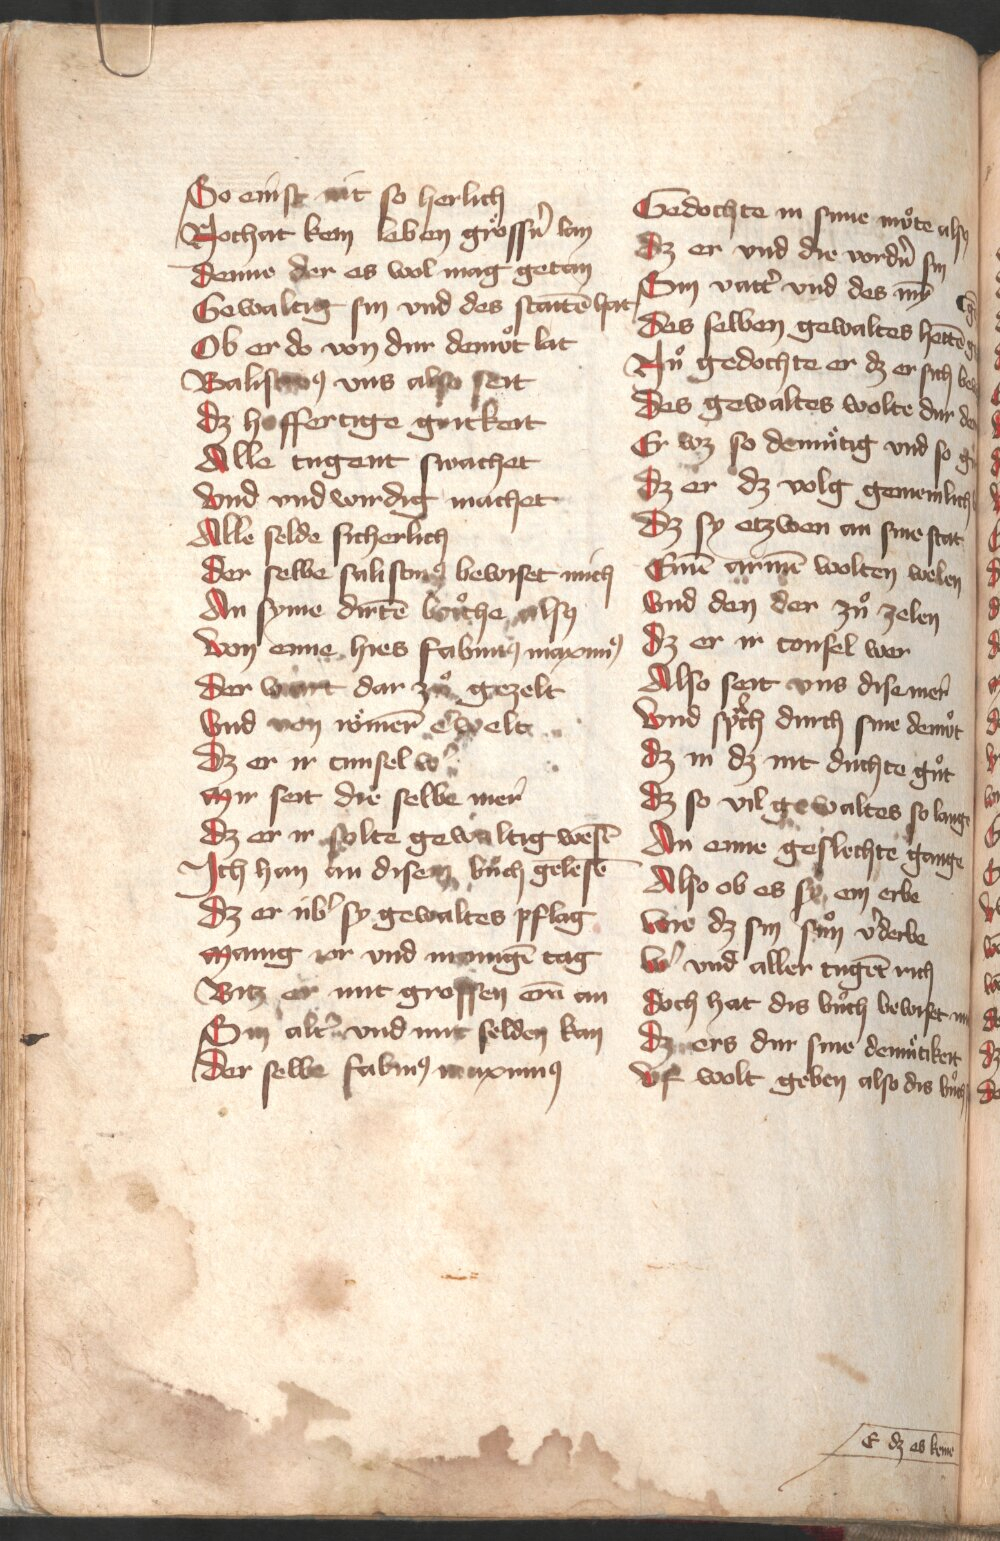 So einist nit so herlich
Nochat kein leben groͤssñ lon
Denne der es wol mag getan
Gewaltig sin vnd des stattē hat
Ob er do von dur demuͦt lat
Valistus vns also seit
Dz hoffertige gitikeit
Alle tugent swachet
Vnd vnd wirdig machet
Alle selde sicherlich
Der selbe salistinꝰ bewiset mich
An syme dirtē buͦche alsꝰ
Von eime hies fabiusꝰ maximꝰ
Der wart dar zuͦ gezelt
Vnd von roͤmer̄ erwelt
Dz er ir cunsel w'
Mir seit die selbe mer'
Dz er ir solte gewaltig wesē
Ich han an disem buͦch gelesē
Dz er úb' sy gewaltes pflag
Manig ior vnd manigē tag
Bitz er mit grossen erē an
Sin alt' vnd mit selden kan
Der selbe fabiꝰ maximꝰ
Gedochte in sime muͦte alsꝰ
Dz er vnd die vordn̄ sin
Sin vatt' vnd des
Des selben gewaltes hettē
Nuͦ gedochte er dz er sich
Des gewaltes wolte dur
Er wz so demuͤtig vnd so
Dz er dz volg gemeinlich
Dz sy etzwen an sine stat
Einē armē wolten welen
Vnd den der zuͦ zelen
Dz er ir consel wer
Also seit vns dise mer'
Vnd sprͣch durch sine demuͦt
Dz in dz nit duchte guͦt
Dz so vil gewaltes so lange
An eime geslechte gange
Also ob es sy ein erbe
Wie dz sin suͦn v'derbe
W' vnd aller tugēt rich
Doch hat dis buͦch bewiset
Dz ers dur sine demuͤtikeit
Vf wolt geben also dis buͦch
E dz es keme